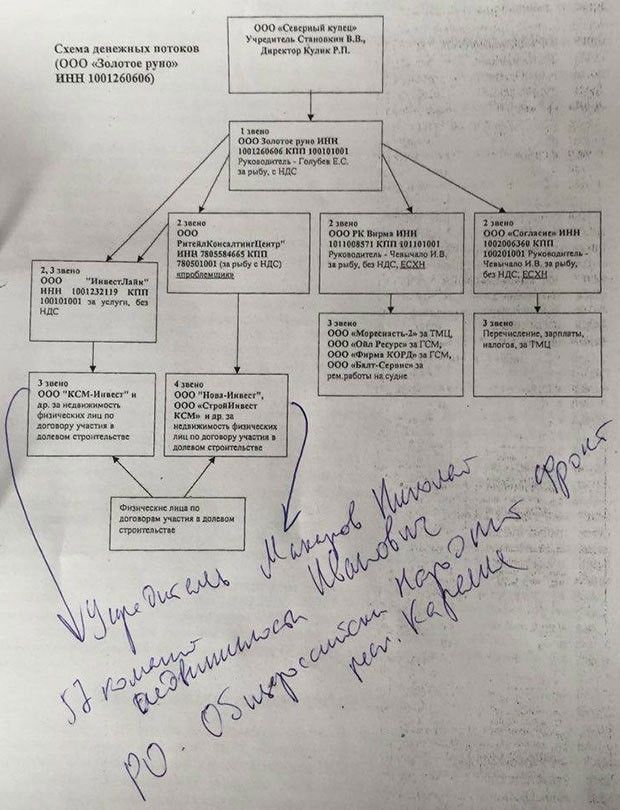 Схема денежных потоков
(ООО «Золотое руно»
ИНН 1001260606)
ООО «Северный купец»
Учредитель Становкин В.В.,
Директор Кулик Р.П.
1 звено
ООО Золотое руно ИНН
1001260606 КПП 100101001
Руководитель - Голубев Е.С.
за рыбу, с НДС
2, 3 звено
ООО "ИнвестЛайн"
ИНН 1001232119 КПП
100101001 за услуги, без
НДС
2 звено
ООО
РитейлКонсалтингЦентр"
ИНН 7805584665 КПП
780501001 (за рыбу с НДС)
«проблемщик»
2 звено
ООО РК Вирма ИНН
1011008571 КПП 101101001
Руководитель - Чевычало И.В.
за рыбу, без НДС, ЕСХН
2 звено
ООО «Согласие» ИНН
1002006360 КПП
100201001 Руководитель -
Чевычало И.В. за рыбу,
без НДС, ЕСХН
3 звено
ООО «Мореснасть-2» за ТМЦ,
ООО «Ойл Ресурс» за ГСМ,
ООО «Фирма КОРД» за ГСМ,
ООО «Балт-Сервис» за
рем.работы на судне
3 звено
Перечисление, зарплаты,
налогов, за ТМЦ
3 звено
ООО "КСМ-Инвест" и
др. за недвижимость
физических лиц по
договору участия в
долевом строительстве
4 звено
ООО "Нова-Инвест",
ООО «СтройИнвест
КСМ» и др. за
недвижимость физических
лиц по договору участия в
долевом строительстве
Физические лица по
договорам участия в долевом
строительстве
Учредитель Макаров Николай
Иванович
57
недвижимости народный фронт
РО Общероссийский
респ. Карелия